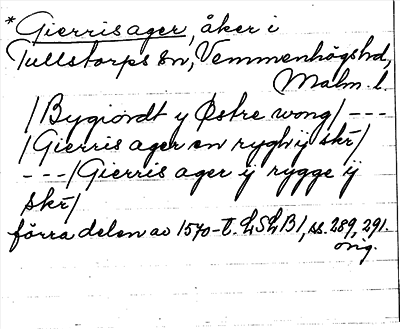 * Gierris ager, åker i
Tullstorps sn, Vemmenhögs hd,
Malm. l.
/Bygiordt y Østre wong/ ---
/Gierris ager en rygh ij skr/
---/Gierris ager ij rygge ij
skr/
förra delen av 1570-t. LSLB1, ss. 289, 291.
orig.